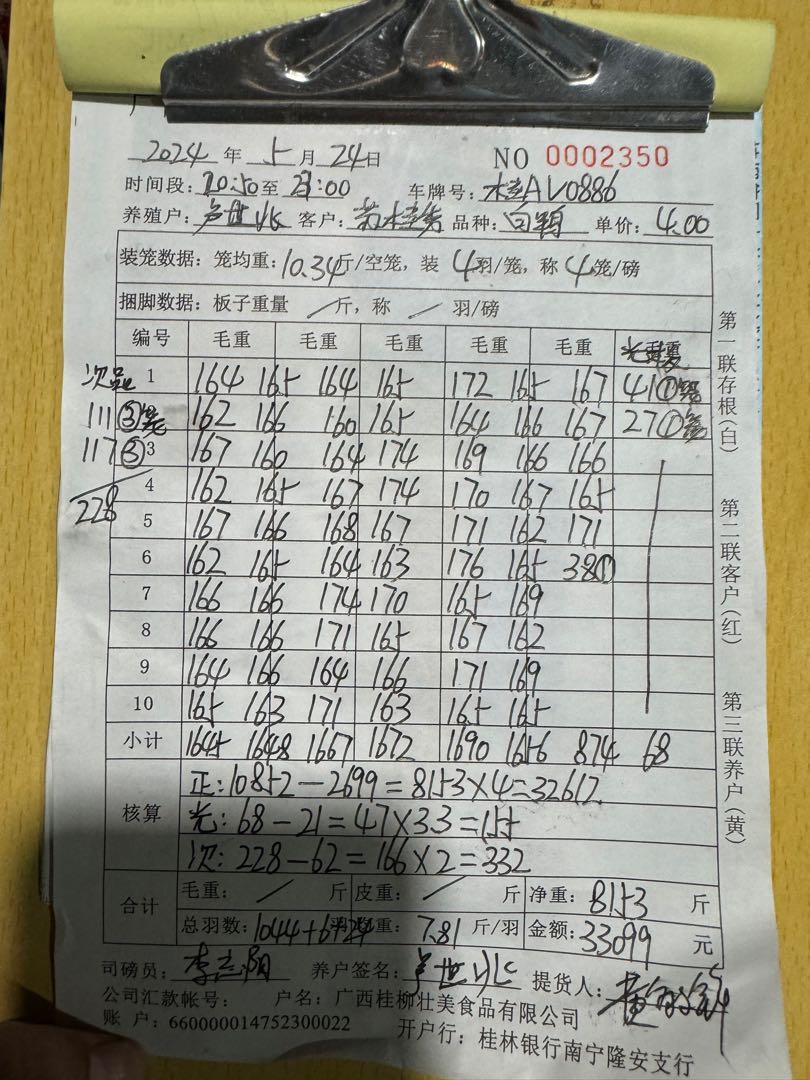 2024 年 5 月 24 日 NO 0002350
时间段: 20:50 至 21:00 车牌号: 桂AV0886
养殖户: 客户: 品种: 单价: 4.00
装笼数据: 笼均重: 10.34 斤/空笼, 装 4 羽/笼, 称 4 笼/磅
捆脚数据: 板子重量 / 斤, 称 / 羽/磅
编号 毛重 毛重 毛重 毛重 毛重
次品 1 164 165 164 165 172 165 167 41①笼
111③笼 162 166 160 165 164 166 167 27①笼
117③ 3 167 160 164 174 169 166 166
4 162 165 167 174 170 167 165
228 5 167 166 168 167 171 162 171
6 162 165 164 163 176 165 38①
7 166 166 174 170 165 169
8 166 166 171 165 167 162
9 164 166 164 166 171 169
10 165 163 171 163 165 165
小计 1645 1648 1667 1672 1690 1656 874 68
核算 正: 10852-2699=8153×4=32612
光: 68-21=47×3.3=155
次: 228-62=166×2=332
合计 毛重: / 斤 皮重: / 斤 净重: 8153 斤
总羽数: 1044+6+24 重: 7.81 斤/羽 金额: 33099 元
司磅员: 李志阳 养户签名: 提货人:
公司汇款帐号: 户名: 广西桂柳壮美食品有限公司
账 户: 660000014752300022 开户行: 桂林银行南宁隆安支行
第一联存根(白)
第二联客户(红)
第三联养户(黄)